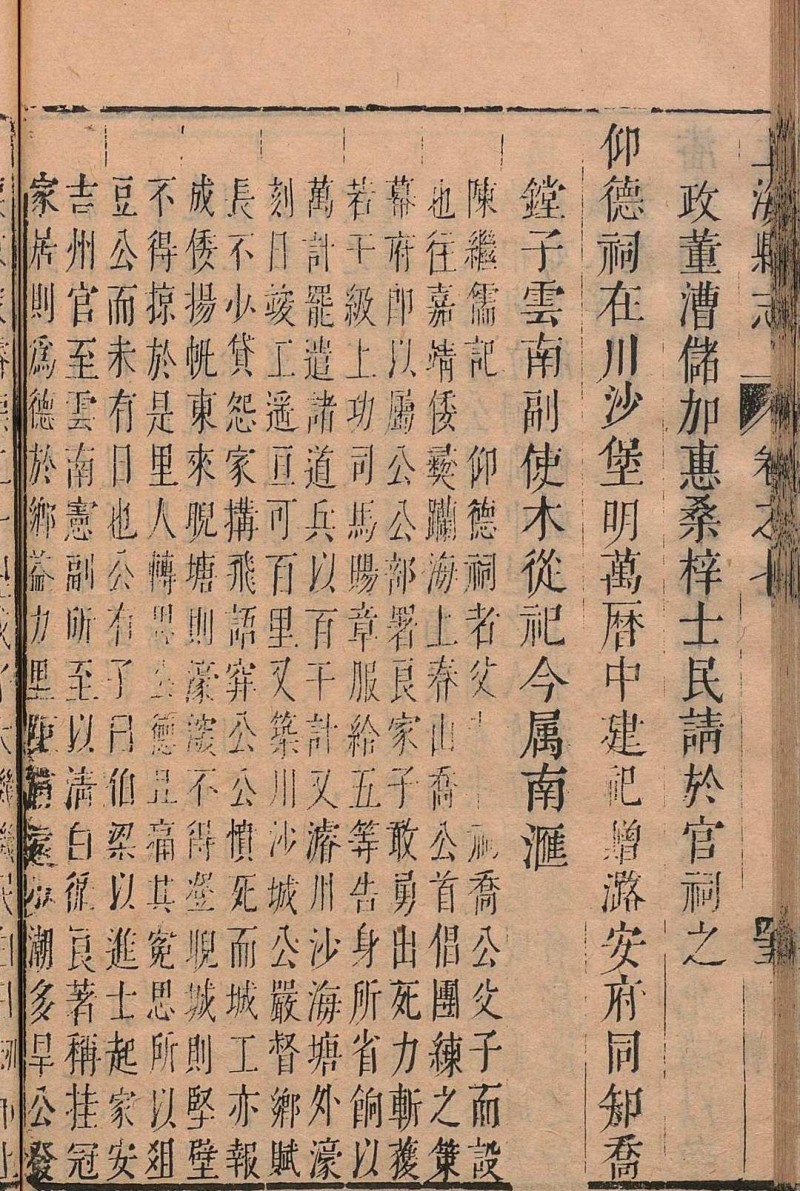 上海縣志 卷之七
政董漕儲加惠桑梓士民請於官祠之
仰德祠在川沙堡明萬曆中建祀贈潞安府同知喬
鏜子雲南副使木從祀今属南滙
陳繼儒記仰德祠者父祠喬公父子而設
也往嘉靖倭躪海上春山喬公首倡團練之策
幕府即以屬公公部署良家子敢勇出死力斬獲
若干級上功司馬賜章服給五等告身所省餉以
萬計罷遣諸道兵以百千計又濬川沙海塘外濠
刻日竣工遥亘可百里又築川沙城公嚴督鄉賦
長不少貸怨家搆飛語穽公公憤死而城工亦報
成倭揚帆東來睨塘則濠深不得登睨城則堅壁
不得掠於是里人轉思公德且痛其寃思所以俎
豆公而未有日也公有子曰伯梁以進士起家安
吉州官至雲南憲副所至以清白循良著稱挂冠
家居則爲德於鄉益力里距浦遠少潮多旱公發